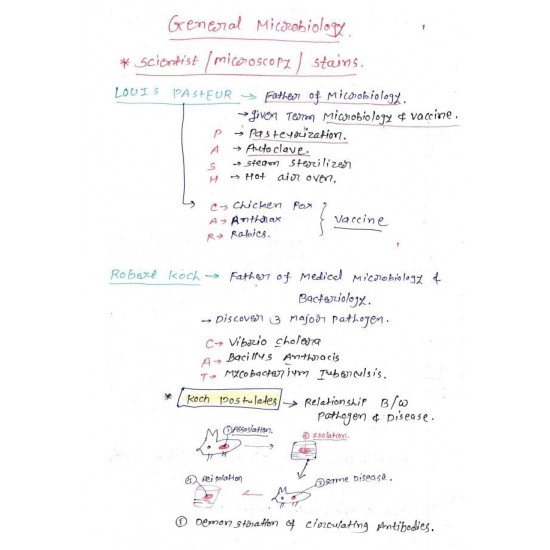 General Microbiology.
* scientist / microscopy / stains.
LOUIS PASTEUR → Father of Microbiology.
→ given Term Microbiology & vaccine.
P → Pasteurization.
A → Autoclave.
S → steam sterilizer
H → Hot air oven.
C → Chicken Pox
A → Anthrax } Vaccine
R → Rabies.
Robert Koch → Father of Medical Microbiology &
Bacteriology.
→ Discover 3 major pathogen.
C → Vibrio cholera
A → Bacillus Anthracis
T → Mycobacterium Tuberculsis.
* Koch postulates → Relationship B/w
Pathogen & Disease.
① Assosiation.
② Isolation.
③ same Disease.
④ Reisolation
⑤ Demonstration of circulating Antibodies.